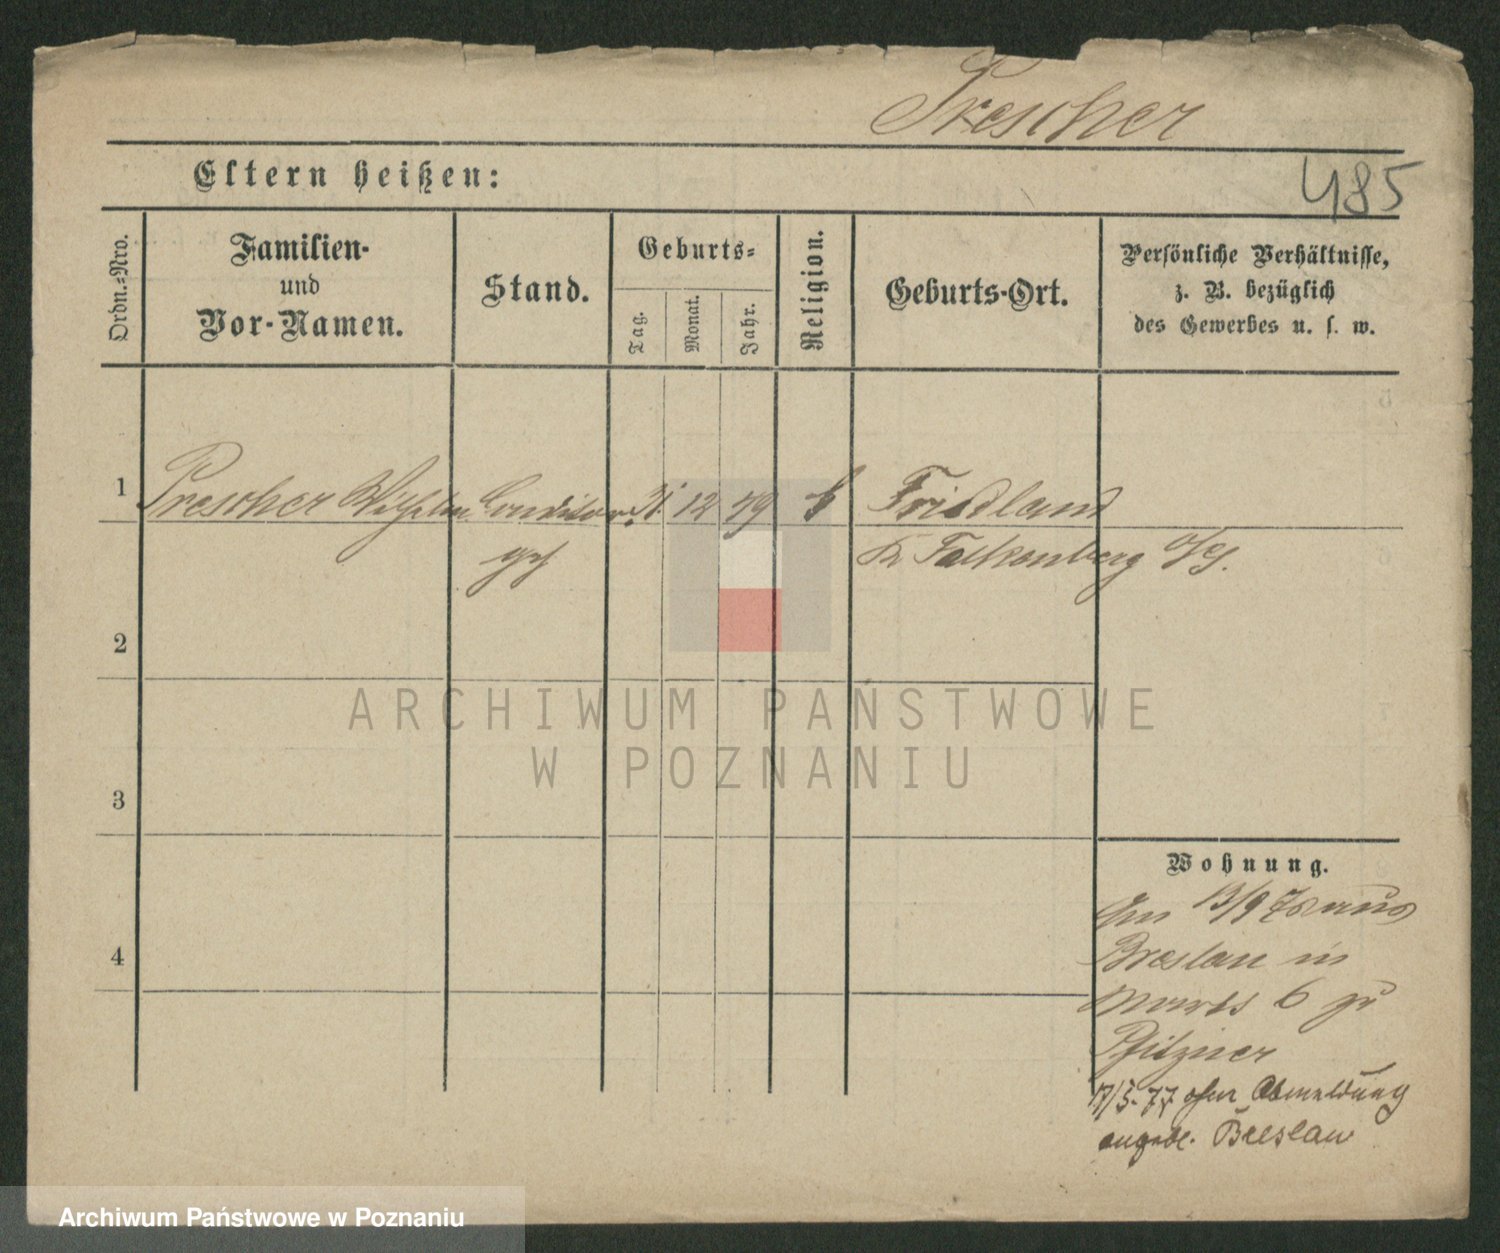 Prescher
Eltern heißen:
485
Ordn.-Nro.
Familien-
und
Vor-Namen.
Stand.
Geburts-
Tag.
Monat.
Jahr.
Religion.
Geburts-Ort.
Persönliche Verhältnisse,
z. B. bezüglich
des Gewerbes u. s. w.
1
Prescher Wilhelm Conditor 31 12 49 Friedland
Kr Falkenberg O/S.
2
3
4
Wohnung.
Am 13/9 76 aus
Breslau in
Markt 6 zu
Pfitzner
17/5. 77 ohne Abmeldung
angebl. Breslau
ARCHIWUM PAŃSTWOWE
W POZNANIU
Archiwum Państwowe w Poznaniu